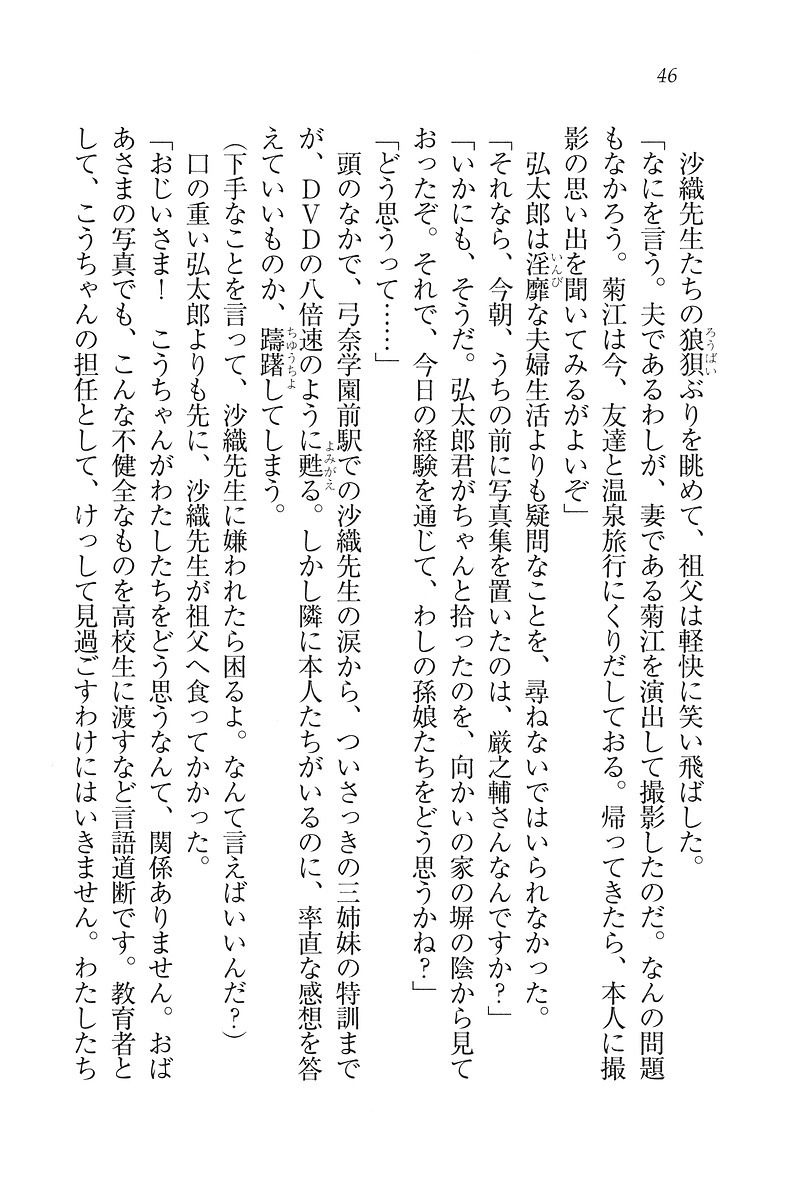 46
沙織先生たちの狼狽ぶりを眺めて、祖父は軽快に笑い飛ばした。
「なにを言う。夫であるわしが、妻である菊江を演出して撮影したのだ。なんの問題
もなかろう。菊江は今、友達と温泉旅行にくりだしておる。帰ってきたら、本人に撮
影の思い出を聞いてみるがよいぞ」
弘太郎は淫靡な夫婦生活よりも疑問なことを、尋ねないではいられなかった。
「それなら、今朝、うちの前に写真集を置いたのは、厳之輔さんなんですか？」
「いかにも、そうだ。弘太郎君がちゃんと拾ったのを、向かいの家の塀の陰から見て
おったぞ。それで、今日の経験を通じて、わしの孫娘たちをどう思うかね？」
「どう思うって……」
頭のなかで、弓奈学園前駅での沙織先生の涙から、ついさっきの三姉妹の特訓まで
が、ＤＶＤの八倍速のように甦る。しかし隣に本人たちがいるのに、率直な感想を答
えていいものか、躊躇してしまう。
（下手なことを言って、沙織先生に嫌われたら困るよ。なんて言えばいいんだ？）
口の重い弘太郎よりも先に、沙織先生が祖父へ食ってかかった。
「おじいさま！　こうちゃんがわたしたちをどう思うなんて、関係ありません。おば
あさまの写真でも、こんな不健全なものを高校生に渡すなど言語道断です。教育者と
して、こうちゃんの担任として、けっして見過ごすわけにはいきません。わたしたち
ろうばい
いんび
よみがえ
ちゅうちょ